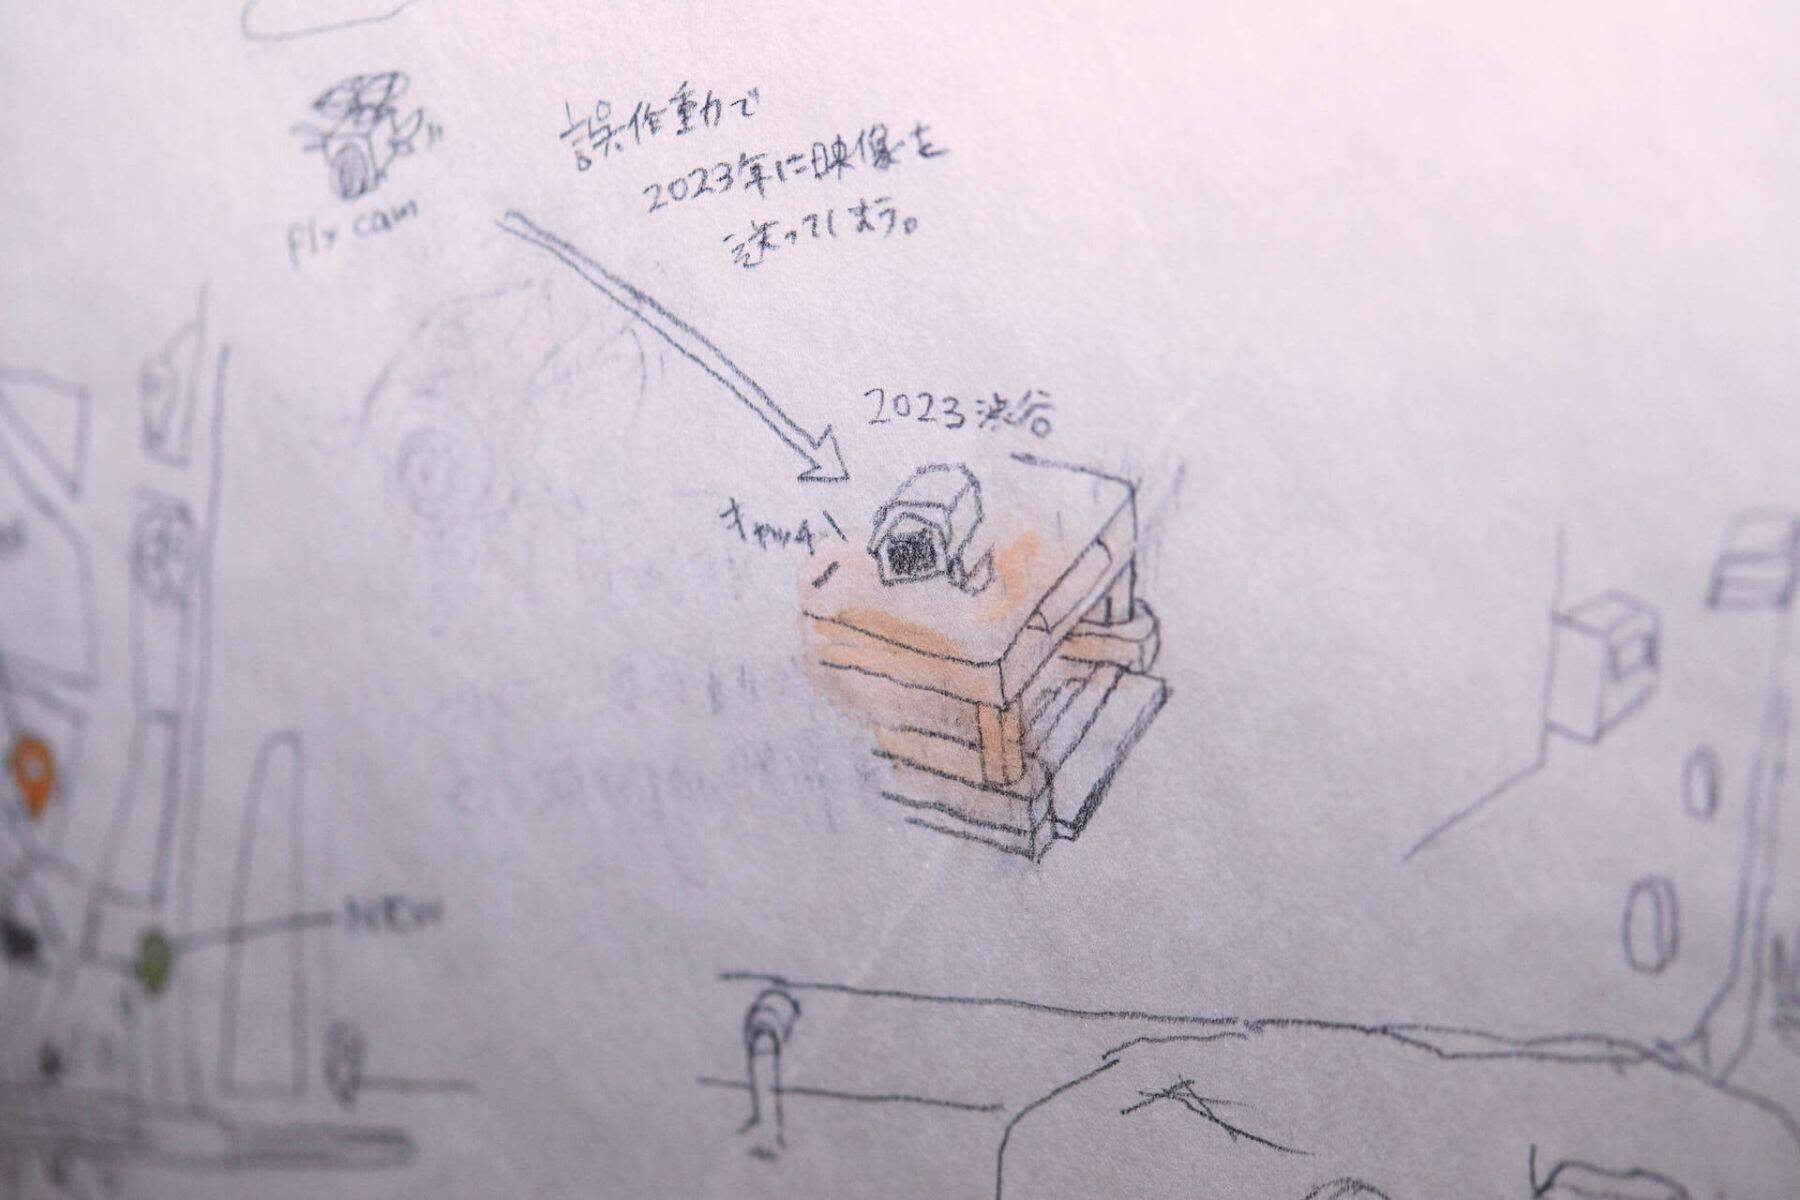 Fly cam
誤作動で
2023年に映像を
送ってしまう。
2023 渋谷
キャッチ